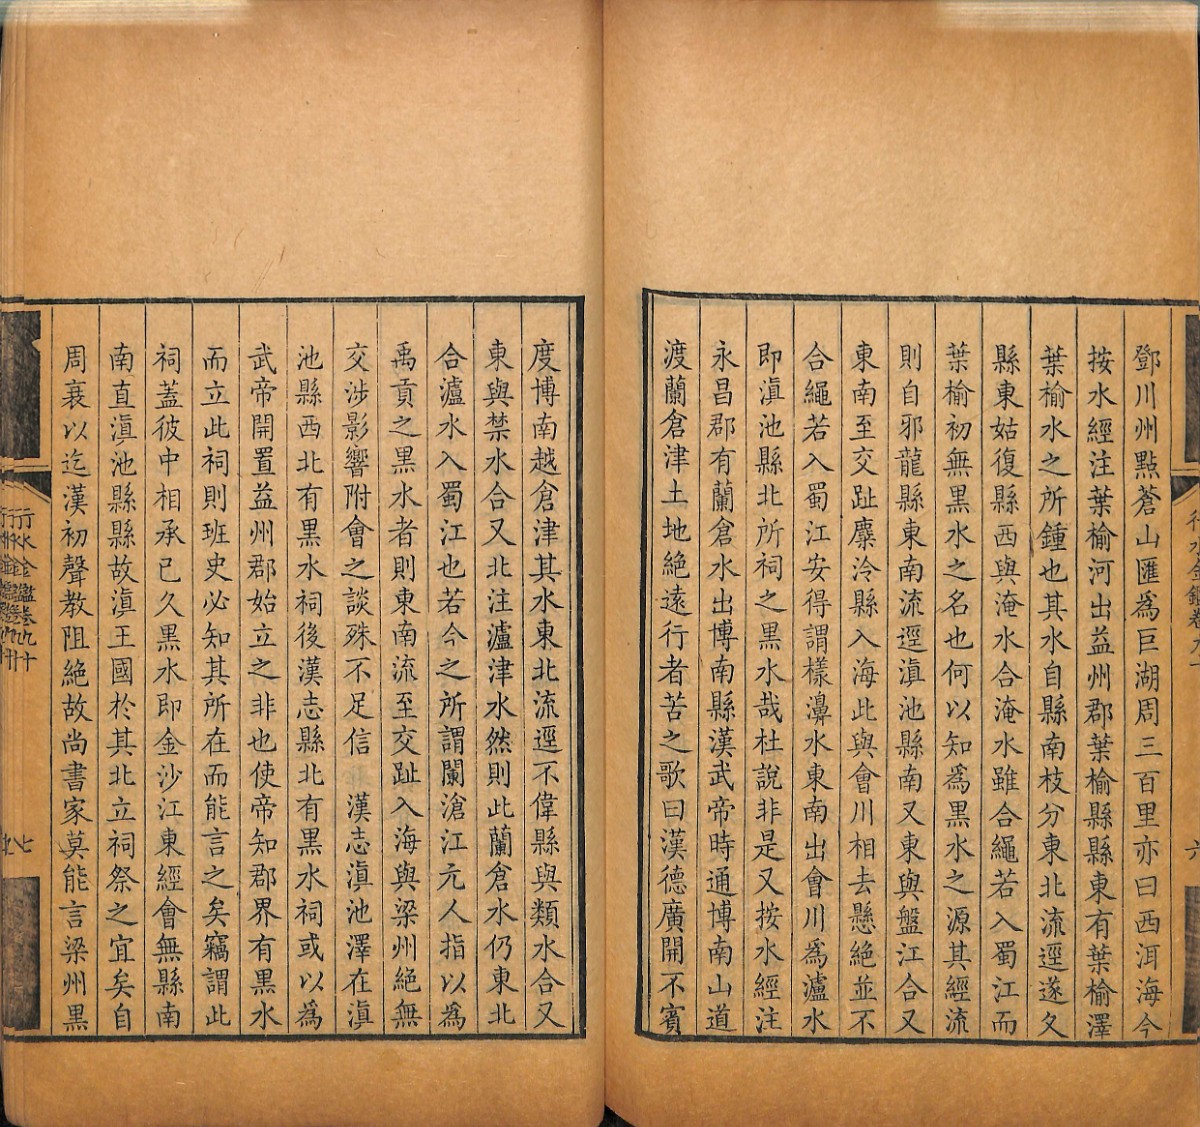 鄧川州點蒼山匯為巨湖周三百里亦曰西洱海今
按水經注葉榆河出益州郡葉榆縣縣東有葉榆澤
葉榆水之所鍾也其水自縣南枝分東北流逕遂久
縣東姑復縣西與淹水合淹水雖合繩若入蜀江而
葉榆初無黑水之名也何以知為黑水之源其經流
則自邪龍縣東南流逕滇池縣南又東與盤江合又
東南至交趾麋泠縣入海此與會川相去懸絕並不
合繩若入蜀江安得謂樣濞水東南出會川為瀘水
即滇池縣北所祠之黑水哉杜說非是又按水經注
永昌郡有蘭倉水出博南縣漢武帝時通博南山道
渡蘭倉津土地絕遠行者苦之歌曰漢德廣開不賓
度博南越倉津其水東北流逕不偉縣與類水合又
東與禁水合又北注瀘津水然則此蘭倉水仍東北
合瀘水入蜀江也若今之所謂闌滄江元人指以為
禹貢之黑水者則東南流至交趾入海與梁州絕無
交涉影響附會之談殊不足信 漢志滇池澤在滇
池縣西北有黑水祠後漢志縣北有黑水祠或以為
武帝開置益州郡始立之非也使帝知郡界有黑水
而立此祠則班史必知其所在而能言之矣竊謂此
祠蓋彼中相承已久黑水即金沙江東經會無縣南
南直滇池縣縣故滇王國於其北立祠祭之宜矣自
周衰以迄漢初聲教阻絕故尚書家莫能言梁州黑